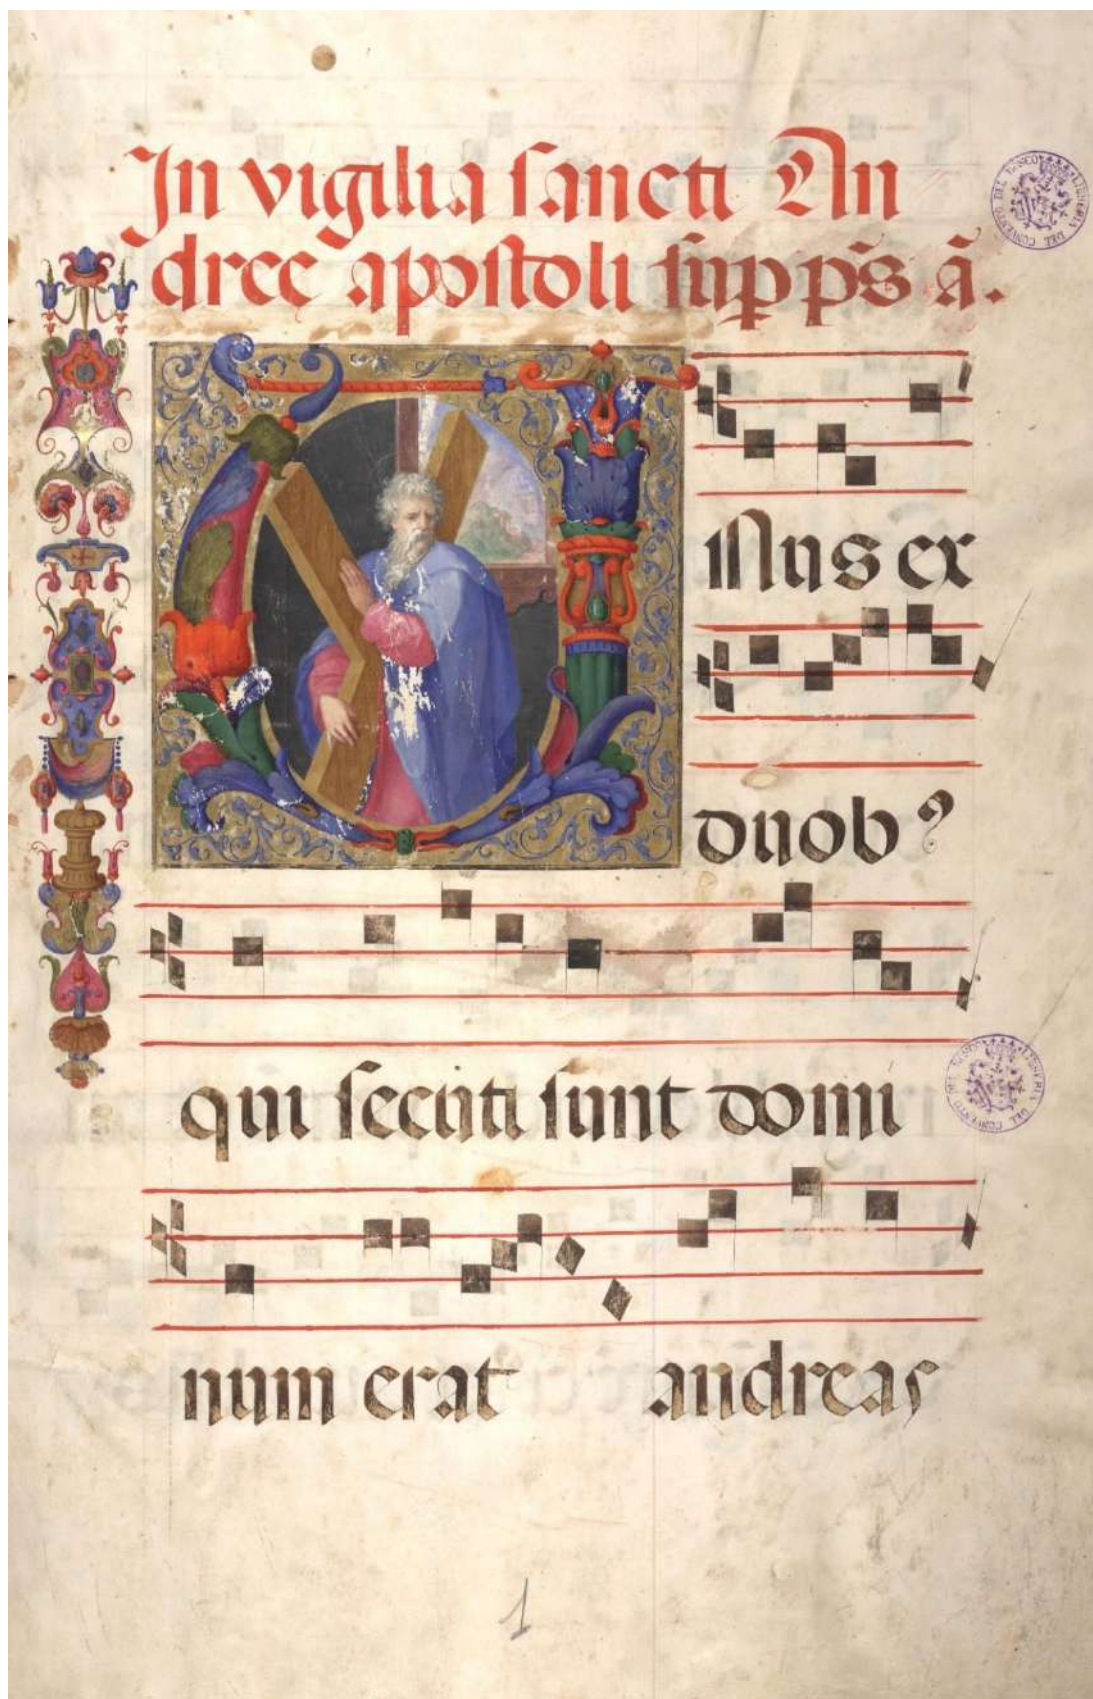 In vigilia sancti An
dreę apostoli sup pp̄s ā.
UNus ex
duobꝰ
qui secuti sunt domi
num erat andreas
1